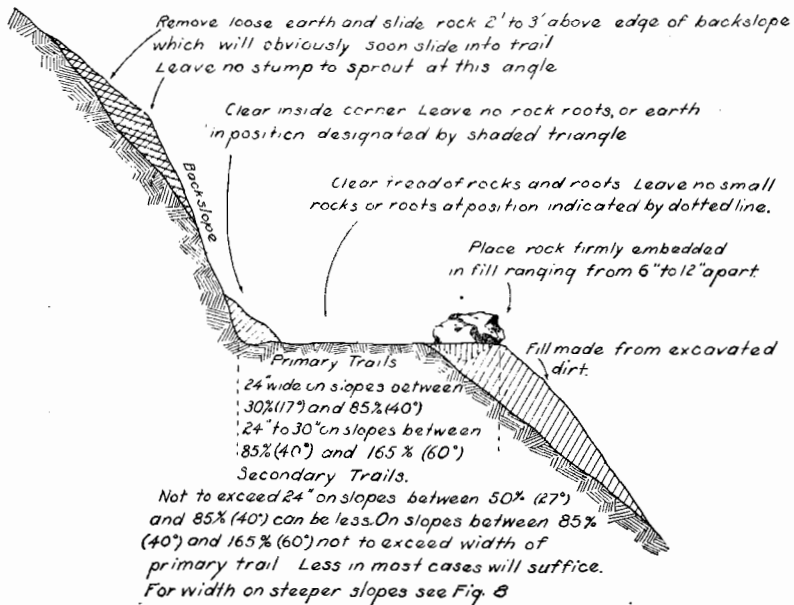 Remove loose earth and slide rock 2' to 3' above edge of backslope
which will obviously soon slide into trail
Leave no stump to sprout at this angle
Clear inside corner Leave no rock roots, or earth
in position designated by shaded triangle
Backslope
Clear tread of rocks and roots Leave no small
rocks or roots at position indicated by dotted line.
Place rock firmly embedded
in fill ranging from 6" to 12" apart
Fill made from excavated
dirt.
Primary Trails
24" wide on slopes between
30% (17°) and 85% (40°)
24" to 30" on slopes between
85% (40°) and 165% (60°)
Secondary Trails.
Not to exceed 24" on slopes between 50% (27°)
and 85% (40°) can be less. On slopes between 85%
(40°) and 165% (60°) not to exceed width of
primary trail Less in most cases will suffice.
For width on steeper slopes see Fig. 8